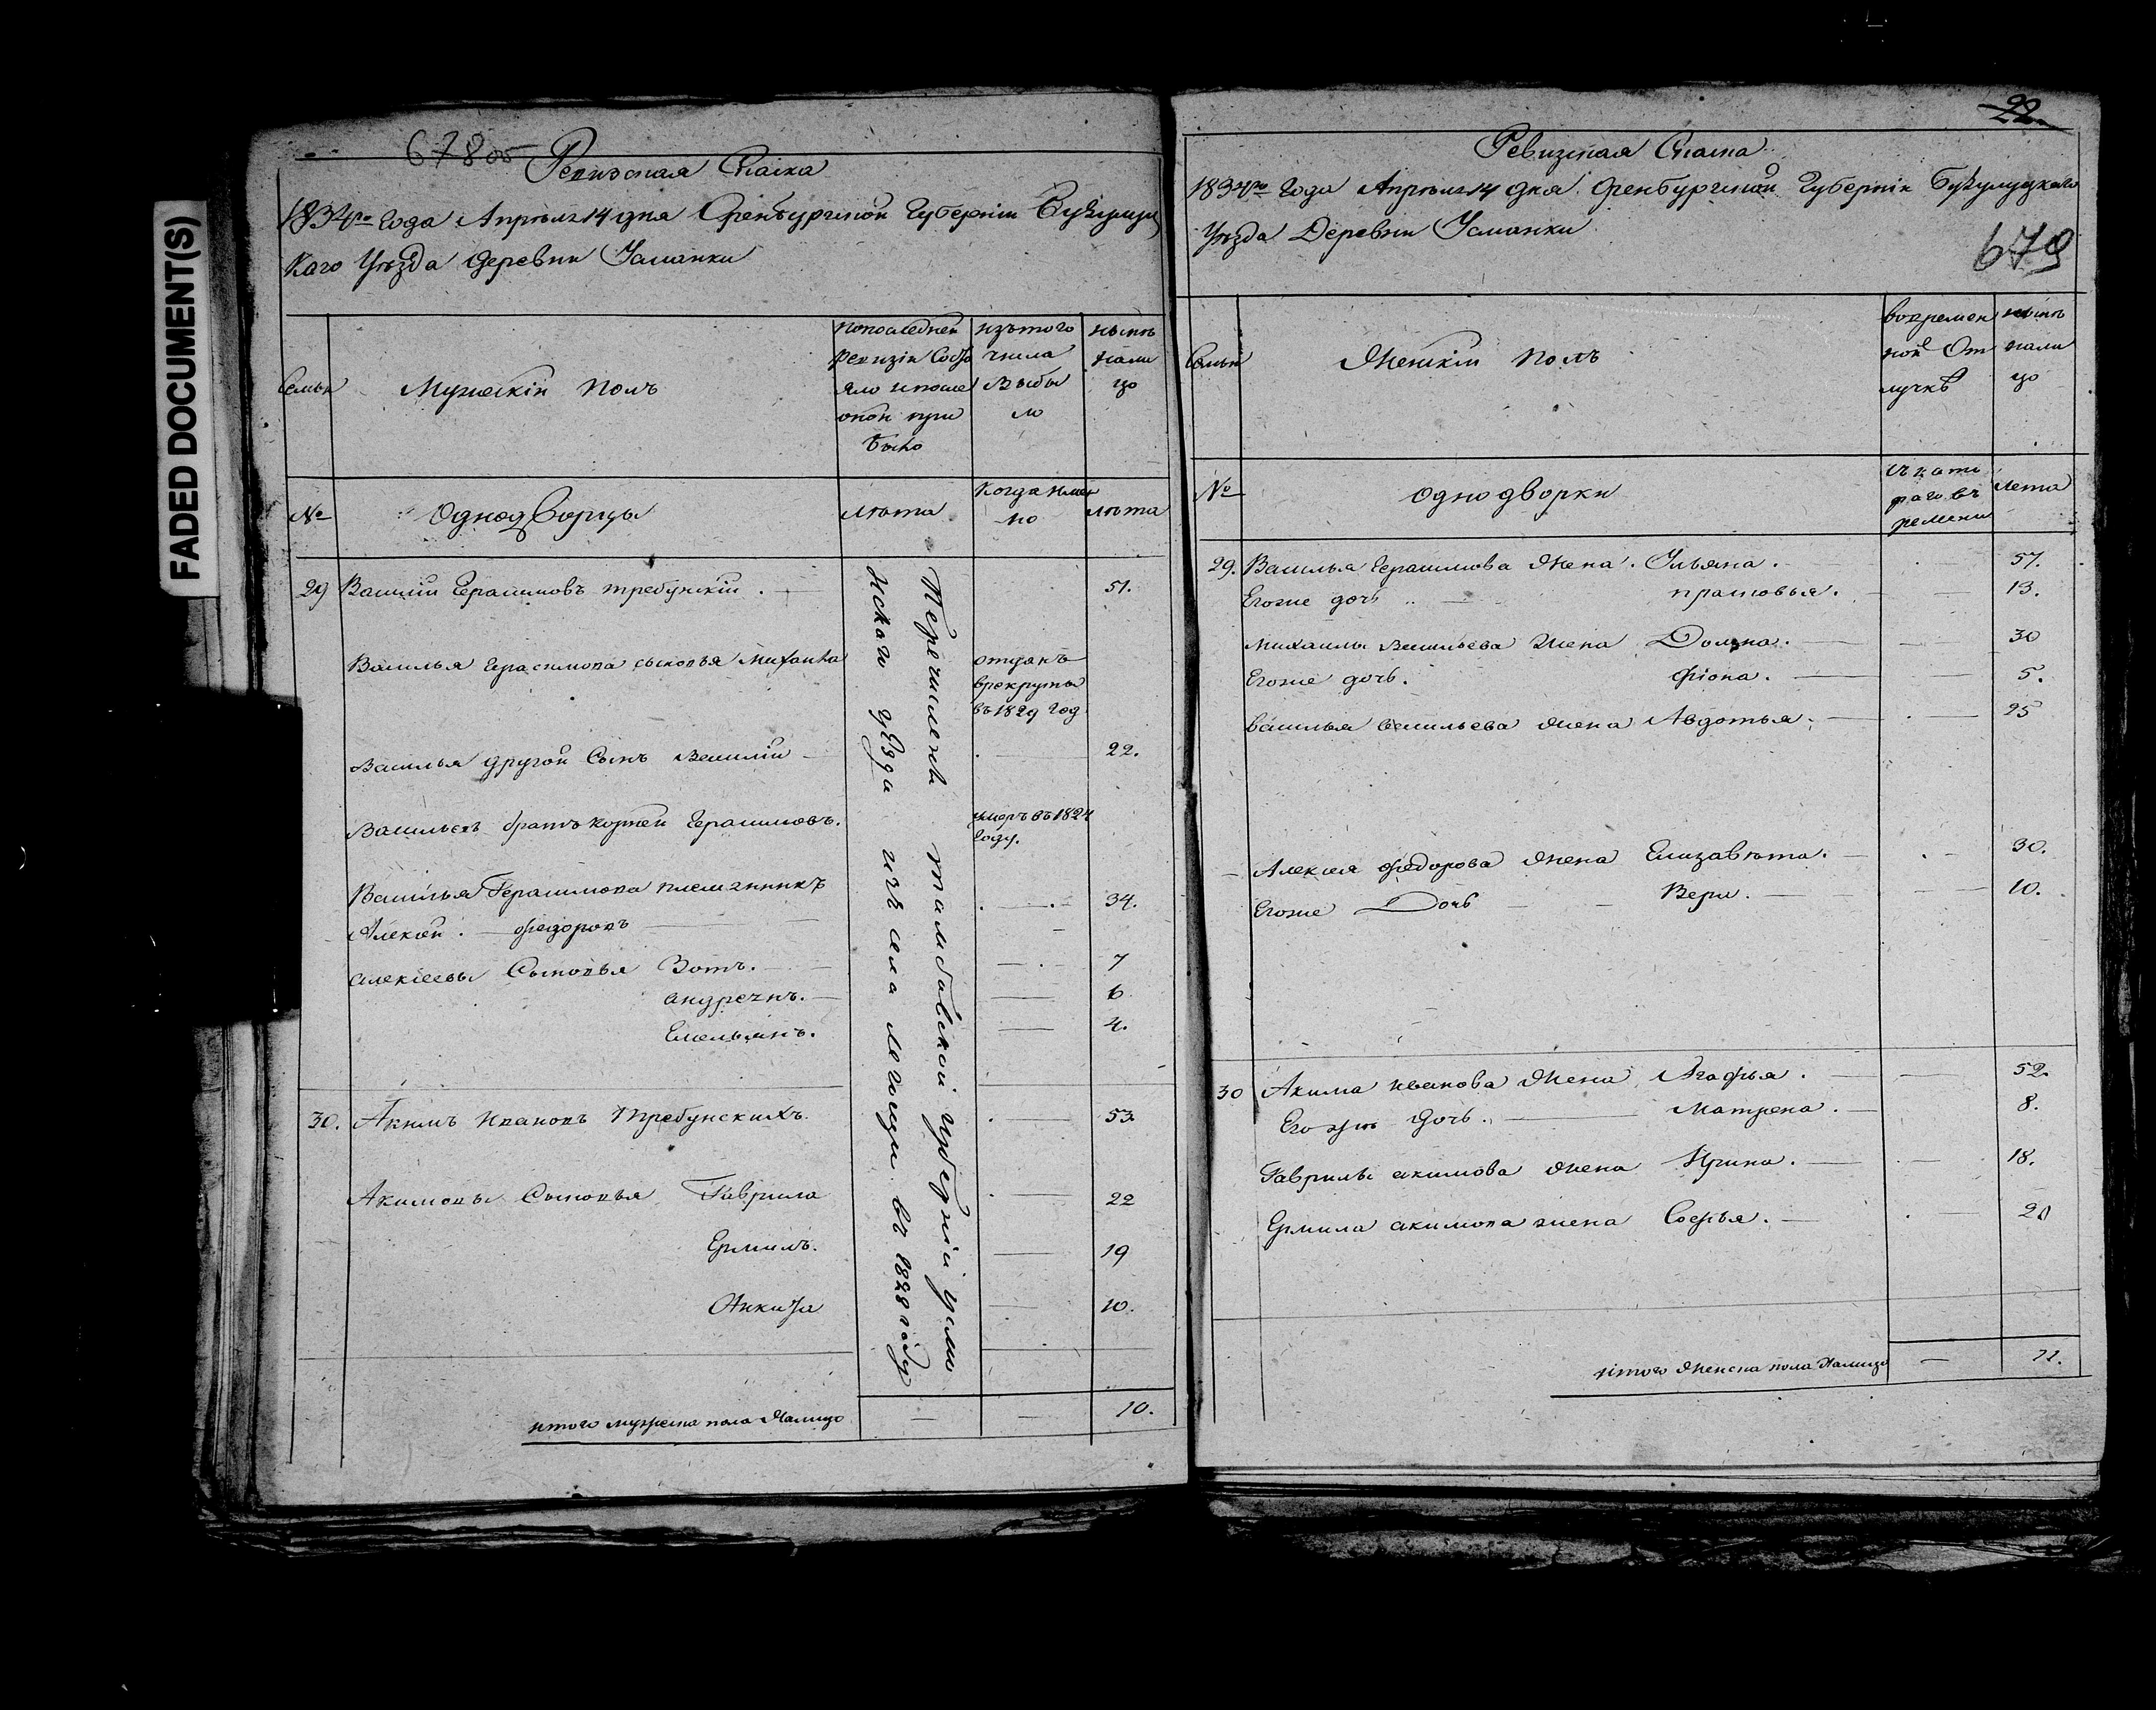 FADED DOCUMENT(S)
678об
Ревизская Сказка
1834го года Апреля 14 дня Оренбургской Губернии Бузулуц
каго Уѣзда деревни Усманки
Семьи
Мужескій полъ
попоследней
ревизіи Состо
яло ипосле
оной при
было
изътого
числа
Выбы
ло
нынѣ
нали
цо
№
Однодворцы
лѣта
Когда имян
но
лѣта
29 Василій Герасимовъ требунскій . 51.
Василья Герасимова сыновья Михаила
отданъ
врекруты
въ 1829 год
Василья другой Сынъ Василій 22.
Васильевъ братъ Корней Герасимовъ.
умеръ въ 1824
году.
Василья Герасимова племянникъ 34.
Алексѣй . Федоровъ
Алексѣевы Сыновья Зотъ. 7
андреянъ. 6
Емельянъ. 4.
30. Акимъ Ивановъ Требунскихъ. 53
Акимовы Сыновья Гаврила 22
Ермилъ. 19
Аникита 10.
Перечислены тамбовской губерніи усма
нскаго уѣзда изъ села в 1828 году
итого мужеска пола Налицо — — 10.
22.
Ревизская Сказка
1834го года Апреля 14 дня Оренбургской Губерніи Бузулуцкаго
Уѣзда Деревни Усманки
679
Семьи
Женскій полъ
вовремен
ной От
лучкѣ
нынѣ
нали
цо
№
однодворки
съкото
раго въ
ремени
Лета
29. Василья Герасимова Жена . Ульяна . 57.
Егоже дочь прасковья. 13.
михаилы Васильева жена Домна. 30
Егоже дочь. Фіона. 5.
василья васильева жена Авдотья. 25
Алексея федорова Жена Елизавѣта. 30.
Егоже Дочь Вера. 10.
30 Акима иванова Жена Агафья . 52.
Егоже дочь . Матрена . 8.
Гаврилы акимова Жена Ирина. 18.
Ермила акимова жена Софья. 20
итого Женска пола Налицо — 11.